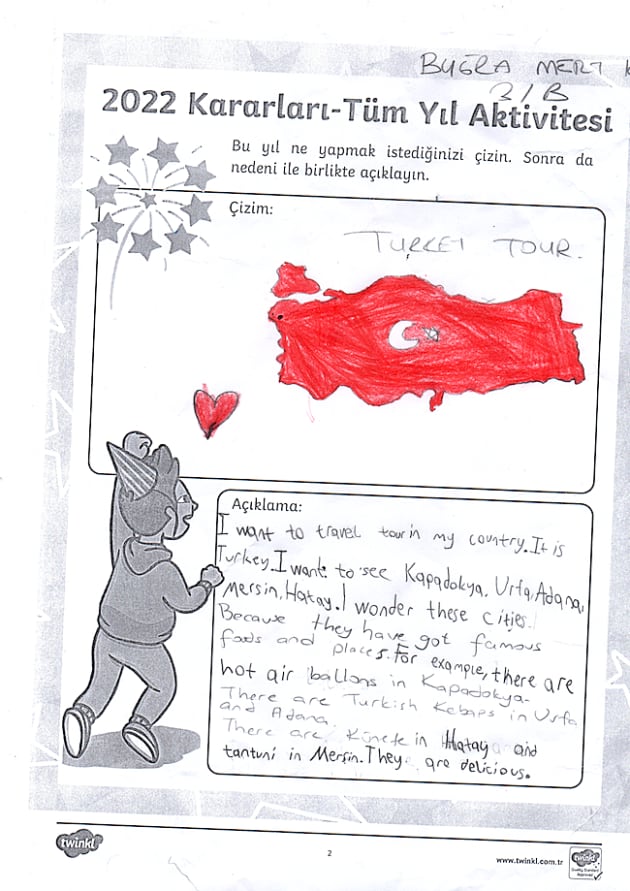 BUĞRA MERT
3/B
2022 Kararları-Tüm Yıl Aktivitesi
Bu yıl ne yapmak istediğinizi çizin. Sonra da
nedeni ile birlikte açıklayın.
Çizim:
TURKEY TOUR.
Açıklama:
I want to travel tour in my country. It is
Turkey. I want to see Kapadokya, Urfa, Adana,
Mersin, Hatay. I wonder these cities.
Because they have got famous
foods and places. For example, there are
hot air ballons in Kapadokya.
There are Turkish Kebaps in Urfa
and Adana.
There are Künefe in Hatay and
tantuni in Mersin. They are delicious.
twinkl
2
www.twinkl.com.tr
twinkl
Quality Standard
Approved